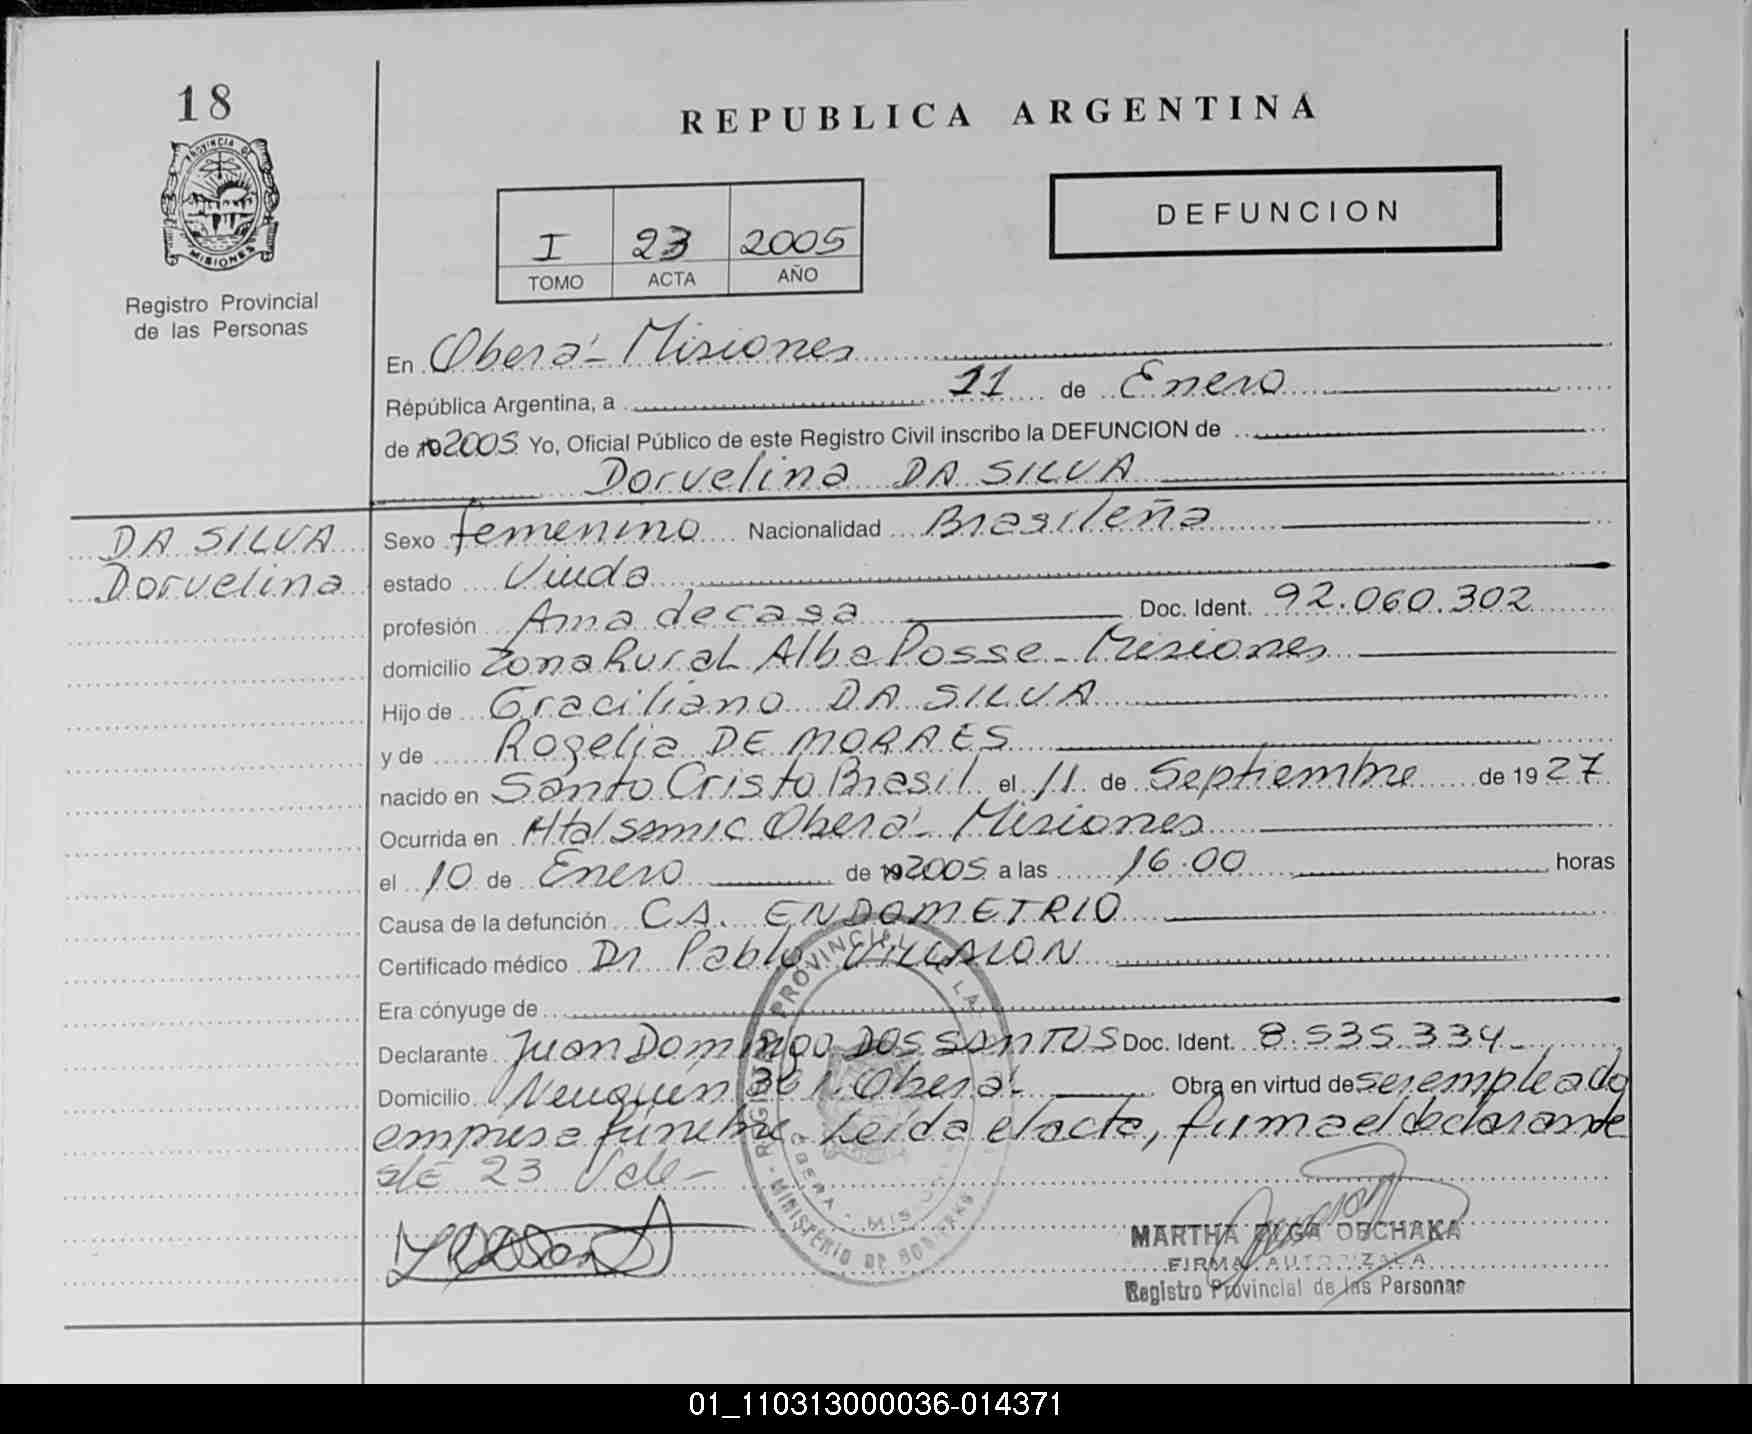 18
REPUBLICA ARGENTINA
PROVINCIA DE
MISIONES
Registro Provincial
de las Personas
I 23 2005
TOMO ACTA AÑO
DEFUNCION
En Oberá - Misiones
Répública Argentina, a 11 de Enero
de 19 2005 Yo, Oficial Público de este Registro Civil inscribo la DEFUNCION de
Dorvelina DA SILVA
DA SILVA
Dorvelina
Sexo femenino Nacionalidad Brasileña
estado Viuda
profesión Ama de casa Doc. Ident. 92.060.302
domicilio Zona Rural Alba Posse - Misiones
Hijo de Graciliano DA SILVA
y de Rogelia DE MORAES
nacido en Santo Cristo Brasil el 11 de Septiembre de 1927
Ocurrida en Htal Samic Oberá - Misiones
el 10 de Enero de 19 2005 a las 16.00 horas
Causa de la defunción CA. ENDOMETRIO
Certificado médico Dr Pablo VILLALON
Era cónyuge de
Declarante Juan Domingo DOS SANTOS Doc. Ident. 8.535.334 -
Domicilio Neuquén Oberá - Obra en virtud de ser empleado
empresa fúnebre. Leída el acta, firma el declarante
s/E 23 Vale -
REGISTRO PROVINCIAL DE LAS
OBERA - MISIONES
MINISTERIO DE GOBIERNO
MARTHA OLGA OBCHAKA
FIRMA AUTORIZADA
Registro Provincial de las Personas
01_110313000036-014371